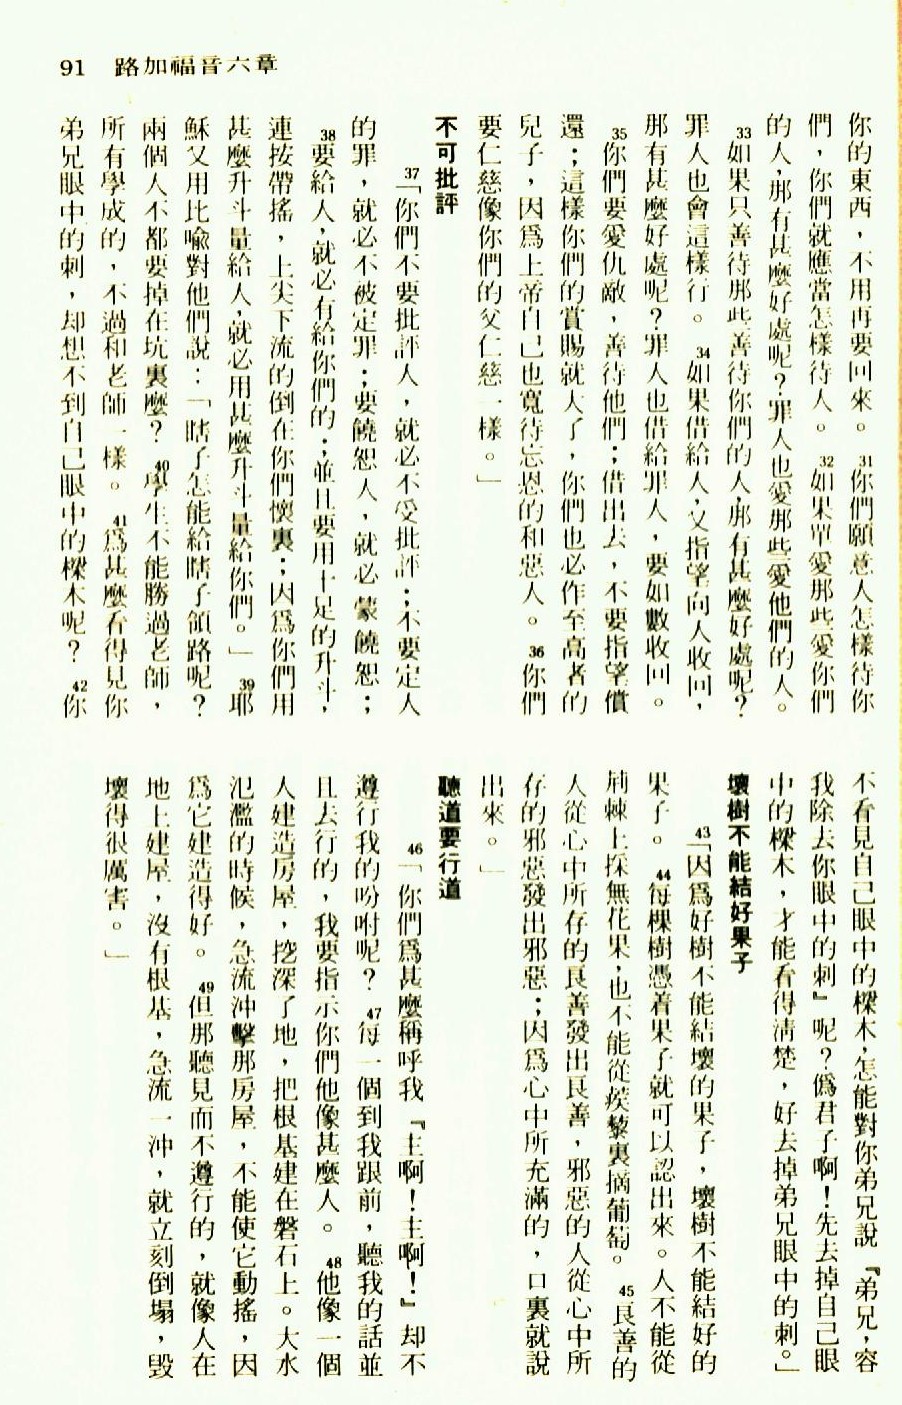 91 路加福音六章
你的東西，不用再要回來。31你們願意人怎樣待你
們，你們就應當怎樣待人。32如果單愛那些愛你們
的人，那有甚麼好處呢？罪人也愛那些愛他們的人。
33如果只善待那些善待你們的人，那有甚麼好處呢？
罪人也會這樣行。34如果借給人，又指望向人收回，
那有甚麼好處呢？罪人也借給罪人，要如數收回。
35你們要愛仇敵，善待他們；借出去，不要指望償
還；這樣你們的賞賜就大了，你們也必作至高者的
兒子，因爲上帝自己也寬待忘恩的和惡人。36你們
要仁慈像你們的父仁慈一樣。」
不可批評
37「你們不要批評人，就必不受批評；不要定人
的罪，就必不被定罪；要饒恕人，就必蒙饒恕；
38要給人，就必有給你們的；並且要用十足的升斗，
連按帶搖，上尖下流的倒在你們懷裏；因爲你們用
甚麼升斗量給人，就必用甚麼升斗量給你們。」39耶
穌又用比喻對他們說：「瞎子怎能給瞎子領路呢？
兩個人不都要掉在坑裏麼？40學生不能勝過老師，
所有學成的，不過和老師一樣。41爲甚麼看得見你
弟兄眼中的刺，却想不到自己眼中的樑木呢？42你
不看見自己眼中的樑木，怎能對你弟兄說『弟兄，容
我除去你眼中的刺』呢？僞君子啊！先去掉自己眼
中的樑木，才能看得清楚，好去掉弟兄眼中的刺。」
壞樹不能結好果子
43「因爲好樹不能結壞的果子，壞樹不能結好的
果子。44每棵樹憑着果子就可以認出來。人不能從
荊棘上採無花果，也不能從蒺藜裏摘葡萄。45良善的
人從心中所存的良善發出良善，邪惡的人從心中所
存的邪惡發出邪惡；因爲心中所充滿的，口裏就說
出來。」
聽道要行道
46「你們爲甚麼稱呼我『主啊！主啊！』却不
遵行我的吩咐呢？47每一個到我跟前，聽我的話並
且去行的，我要指示你們他像甚麼人。48他像一個
人建造房屋，挖深了地，把根基建在磐石上。大水
氾濫的時候，急流沖擊那房屋，不能使它動搖，因
爲它建造得好。49但那聽見而不遵行的，就像人在
地上建屋，沒有根基，急流一沖，就立刻倒塌，毀
壞得很厲害。」